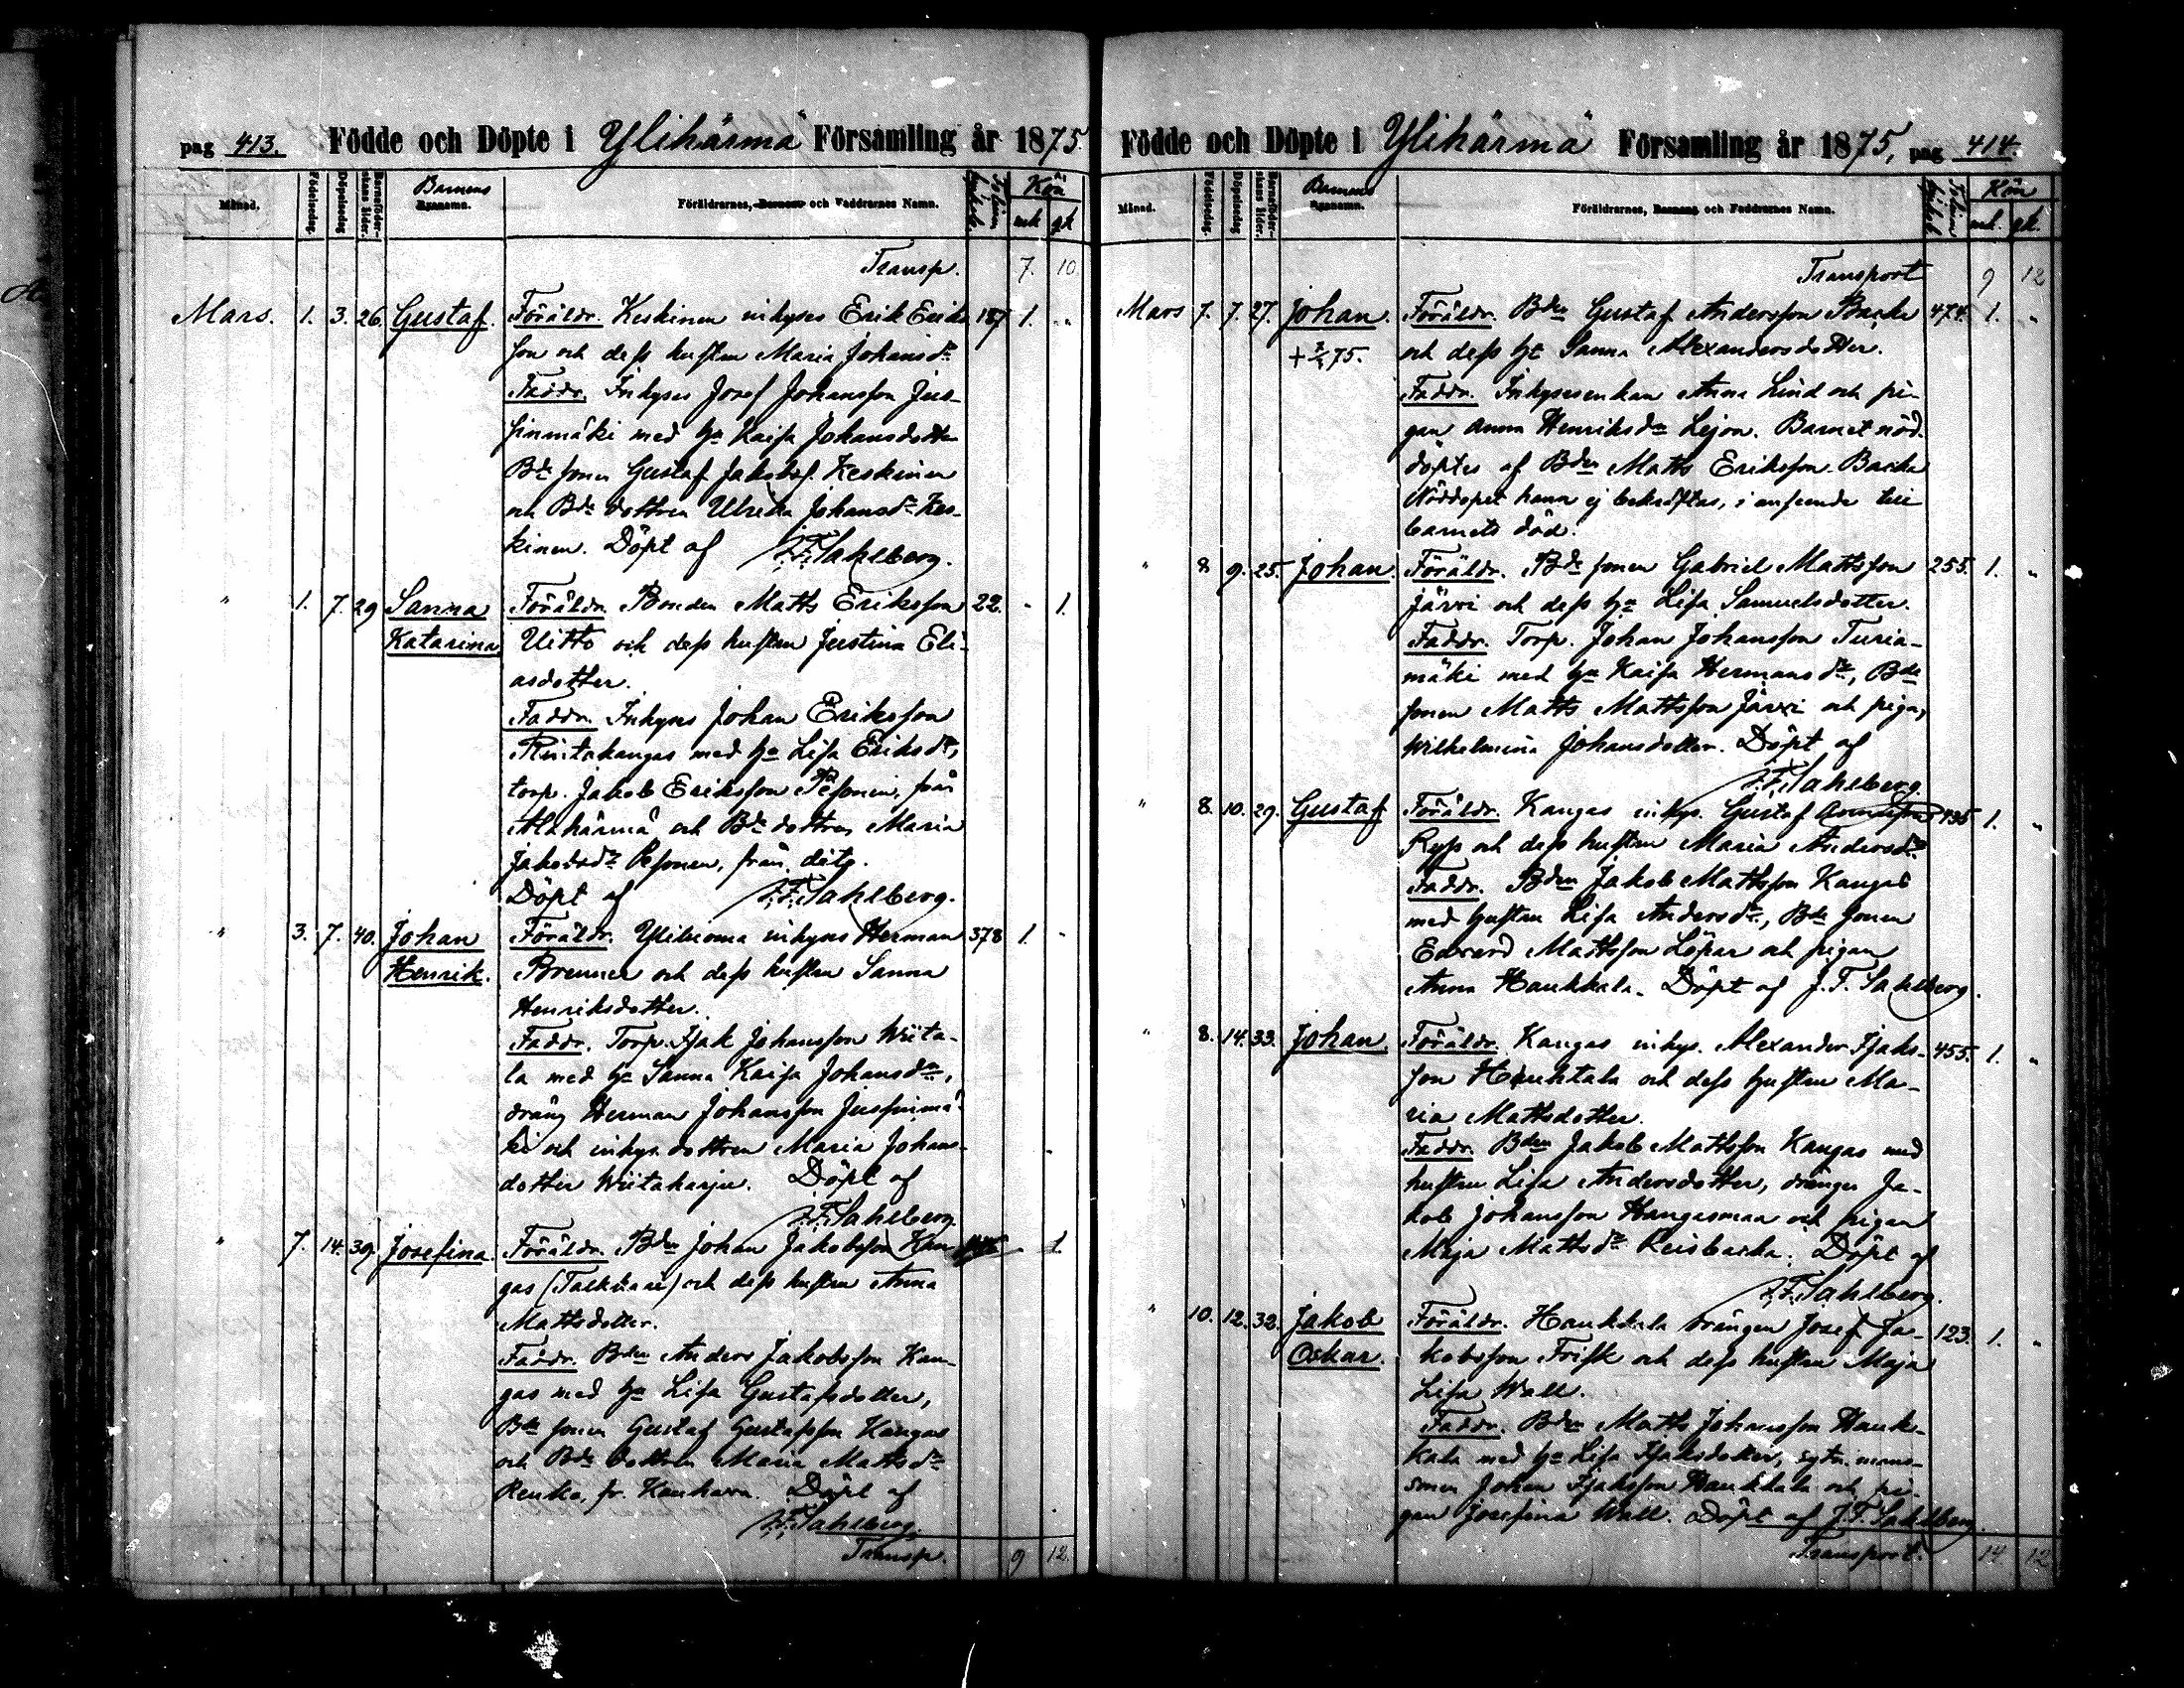 pag 413. Födde och Döpte i Ylihärmä Församling år 1875.
Månad. Födelsedag. Döpelsedag. Barnaföderskans ålder. Barnens Föräldrarnes, Barnens och Faddrarnes Namn. Kön
mk qk
Transp. 7. 10.
Mars. 1. 3. 26. Gustaf. Föräldr. Keskinen inhyses Erik Eriks 187 1. "
son och dess hustru Maria Johansdr
Faddr. Inhyses Josef Johansson Jus-
sinmäki med ha Kaisa Johansdotter
Bde sonen Gustaf Jakobsf. Keskinen
och Bde dottren Ulrika Johansdr Kes-
kinen. Döpt af J.F. Sahlberg.
" 1. 7. 29 Sanna Föräldr. Bonden Matts Eriksson 22. " 1.
Katarina Uitto och dess hustru Justina Eli-
asdotter.
Faddr. Inhyses Johan Eriksson
Rintakangas med ha Lisa Eriksdr,
torp. Jakob Eriksson Pesonen, från
Alahärmä och Bde dottren Maria
Jakobsdr Pesonen, från dito.
Döpt af J.F. Sahlberg.
" 3. 7. 40. Johan Föräldr. Yliluoma inhyses Herman 378 1. "
Henrik. Brenner och dess hustru Sanna
Henriksdotter.
Faddr. Torp. Isak Johansson Wiita-
la med ha Sanna Kaisa Johansdr,
dräng Herman Johansson Jussinmä-
ki och inhys. dottren Maria Johans-
dotter Wiitaharju. Döpt af
J.F. Sahlberg
" 7. 14. 39. Josefina. Föräldr. Bden Johan Jakobsson Kan- " 1.
gas (Talkkari) och dess hustru Anna
Mattsdotter.
Faddr. Bden Anders Jakobsson Kan-
gas med ha Lisa Gustafsdotter,
Bde sonen Gustaf Gustafsson Kangas
och Bde dottren Maria Mattsdr
Renko, fr. Kauhava. Döpt af
J.F. Sahlberg.
Transp. 9 12.
Födde och Döpte i Ylihärmä Församling år 1875, pag 414.
Månad. Födelsedag. Döpelsedag. Barnaföderskans ålder. Barnens Föräldrarnes, Barnens och Faddrarnes Namn. Kön
mk. qk.
Transport 9 12
Mars 7. 7. 27. Johan. Föräldr. Bden Gustaf Andersson Backa 474. 1. "
75. och dess ha Sanna Alexandersdotter.
Faddr. Inhysesenkan Anna Lind och pi-
gan Anna Henriksdr Lejon. Barnet nöd-
döptes af Bden Matts Eriksson Backa
Nöddopet hann ej bekräftas, i anseende till
barnets död.
" 8. 9. 25. Johan. Föräldr. Bde sonen Gabriel Mattsson 255. 1. "
Järvi och dess ha Lisa Samuelsdotter.
Faddr. Torp. Johan Johansson Turja-
mäki med ha Kaisa Hermansdr, Bde
sonen Matts Mattsson Järvi och pigan
Wilhelmina Johansdotter. Döpt af
J.F. Sahlberg.
" 8. 10. 29. Gustaf Föräldr. Kangas inhys. Gustaf 1. "
Ryss och dess hustru Maria Andersdr
Faddr. Bden Jakob Mattsson Kangas
med hustru Lisa Andersdr, Bde sonen
Edvard Mattsson Löpar och pigan
Anna Haukkala. Döpt af J.F. Sahlberg.
" 8. 14. 33. Johan. Föräldr. Kangas inhys. Alexander Isaks- 455. 1. "
son Hauktala och dess hustru Ma-
ria Mattsdotter.
Faddr. Bden Jakob Mattsson Kangas med
hustru Lisa Andersdotter, drängen Ja-
kob Johansson Kangasmaa och pigan
Maja Mattsdr Reisbacka. Döpt af
J.F. Sahlberg.
" 10. 12. 32. Jakob Föräldr. Haukkala drängen Josef Ja- 123. 1. "
Oskar. kobsson Frisk och dess hustru Maja
Lisa Wall.
Faddr. Bden Matts Johansson Hauk-
kala med ha Lisa Isaksdotter, sytn. mans-
sonen Johan Isaksson Haukkala och pi-
gan Josefina Wall. Döpt af J.F. Sahlberg.
Transport. 14 12